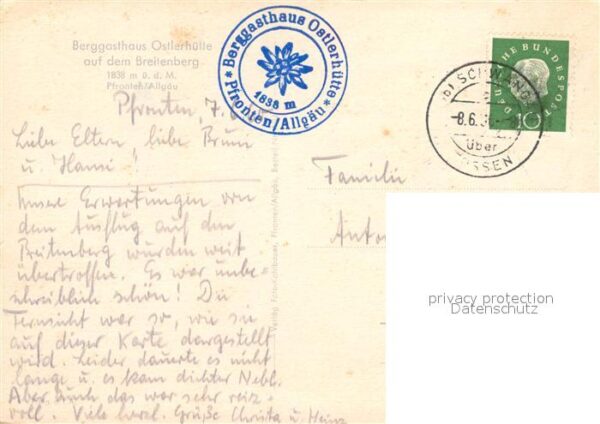 Berggasthaus Ostlerhütte
auf dem Breitenberg
1838 m ü. d. M.
Pfronten/Allgäu
* Berggasthaus Ostlerhütte *
1838 m
Pfronten/Allgäu
DEUTSCHE BUNDESPOST
10
SCHWAND
8.6.
über
FÜSSEN
Pfronten, 7.
Liebe Eltern, liebe
u. Hansi!
Unsere Erwartungen von
dem Ausflug auf den
Breitenberg wurden weit
übertroffen. Es war unbe-
schreiblich schön! Die
Fernsicht war so, wie sie
auf dieser Karte dargestellt
wird. Leider dauerte es nicht
lange u. es kam dichter Nebl.
Aber auch das war sehr reiz-
voll. Viele herzl. Grüße Christa u. Heinz
Familie
Anto
privacy protection
Datenschutz